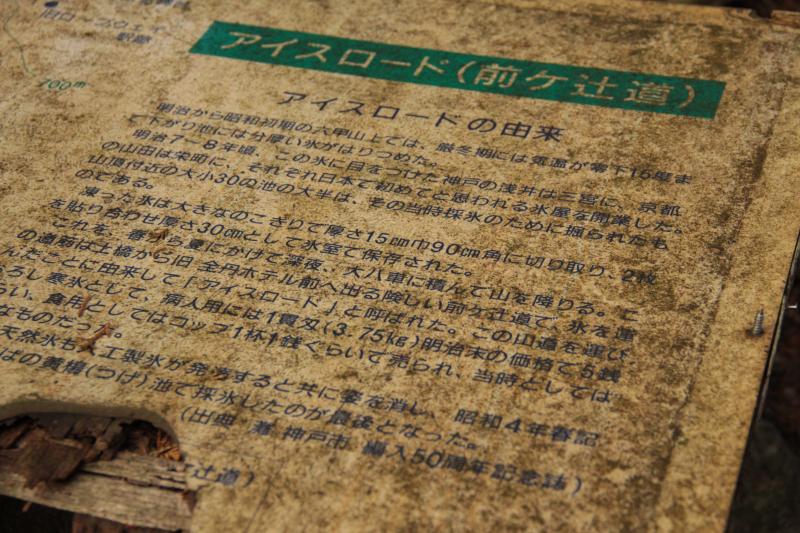 旧ロープウェイ
駅跡
700m
アイスロード(前ケ辻道)
アイスロードの由来
明治から昭和初期の六甲山上では、厳冬期には気温が零下15度ま
で下がり池には分厚い氷がはりつめた。
明治7-8年頃、この氷に目をつけた神戸の浅井は三宮に、京都
の山田は栄町に、それぞれ日本で初めてと思われる氷屋を開業した。
山頂付近の大小30の池の大半は、その当時採氷のために掘られたも
のである。
凍った氷は大きなのこぎりで厚さ15cm巾90cm角に切り取り、2枚
を貼り合わせ厚さ30cmとして氷室で保存された。
これを、春から夏にかけて深夜、大八車に積んで山を降りる。こ
の道筋は土橋から旧 全丹ホテル前へ出る険しい前ケ辻道で、氷を運
んだことに由来して「アイスロード」と呼ばれた。この山道を運び
ろし寒氷として、病人用には1貫匁(3.75kg)明治末の価格で5銭
らい、食用としてはコップ1杯1銭ぐらいで売られ、当時としては
なものだった。
天然氷も人工製氷が発達すると共に姿を消し、昭和4年春記
ばの黄楊(つげ)池で採氷したのが最後となった。
(出典 灘 神戸市 編入50周年記念誌)
辻道)